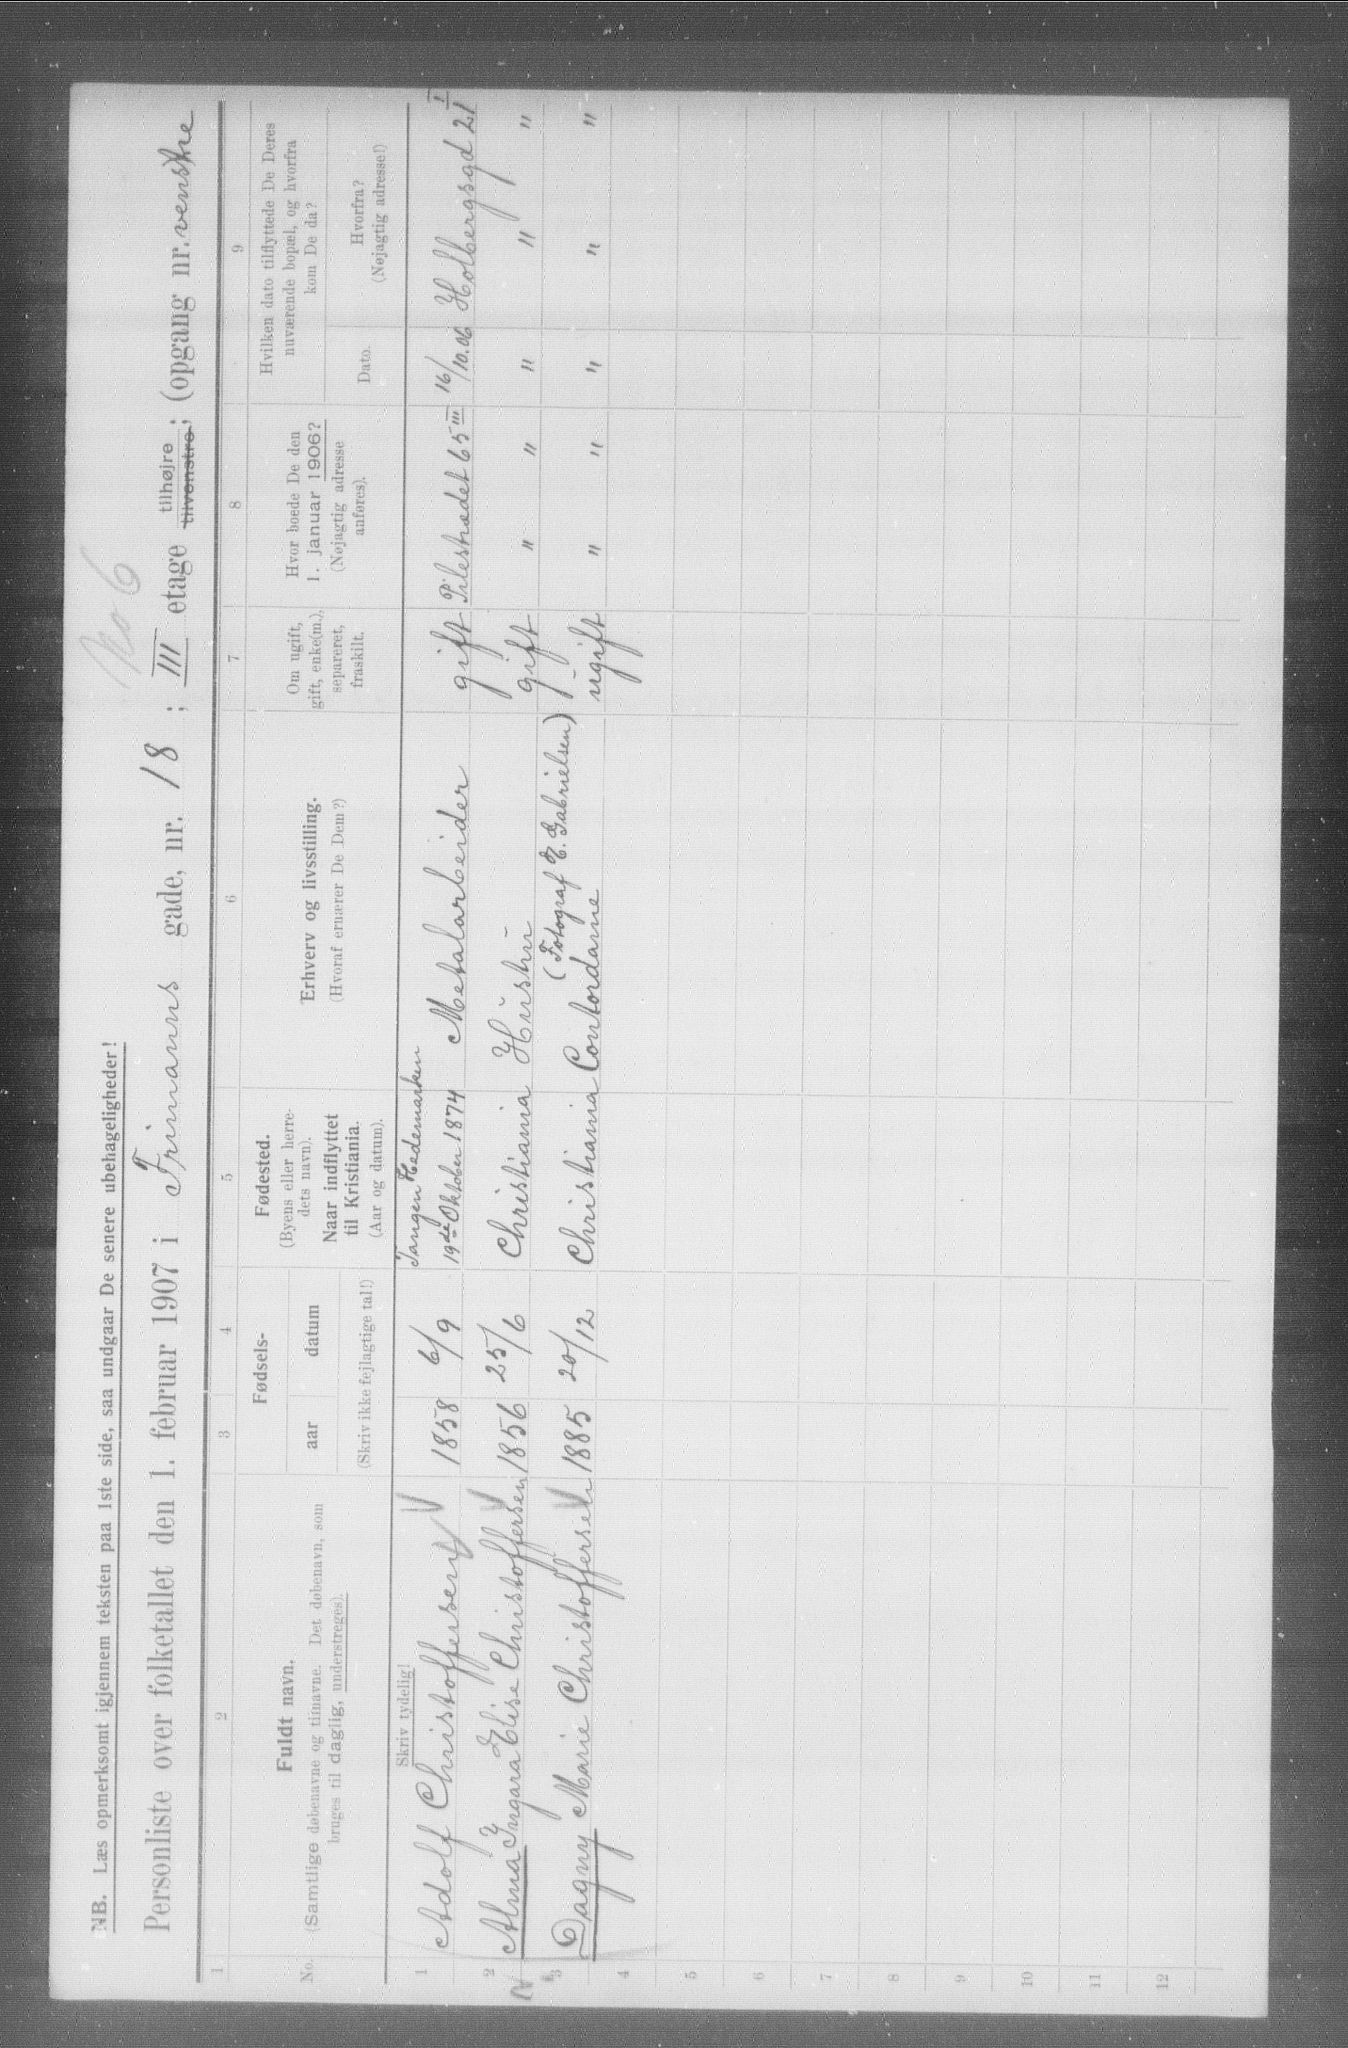 No 6
NB. Læs opmerksomt igjennem teksten paa 1ste side, saa undgaar De senere ubehageligheder!
Personliste over folketallet den 1. februar 1907 i Frimanns gade, nr. 18 ; III etage tilhøjre tilvenstre; (opgang nr. venstre
1 2 3 4 5 6 7 8 9
No. Fuldt navn. (Samtlige døbenavne og tilnavne. Det døbenavn, som bruges til daglig, understreges).
Fødsels- aar datum (Skriv ikke fejlagtige tal!)
Fødested. (Byens eller herredets navn). Naar indflyttet til Kristiania. (Aar og datum).
Erhverv og livsstilling. (Hvoraf ernærer De Dem?)
Om ugift, gift, enke(m.), separeret, fraskilt.
Hvor boede De den 1. januar 1906? (Nøjagtig adresse anføres).
Hvilken dato tilflyttede De Deres nuværende bopæl, og hvorfra kom De da?
Dato. Hvorfra? (Nøjagtig adresse!)
Skriv tydelig!
1 Adolf Christoffersen 1858 6/9 Tangen Hedemarken 19de Oktober 1874 Metalarbeider gift Pilestrædet 65 III 16/10.06 Holbergsgd 21 I
2 Alma Ingara Elise Christoffersen 1856 25/6 Christiania Hustru gift " " " " "
3 Dagny Marie Christoffersen 1885 20/12 Christiania Contordame (Fotograf E. Gabrielsen) ugift " " " " "
4
5
6
7
8
9
10
11
12